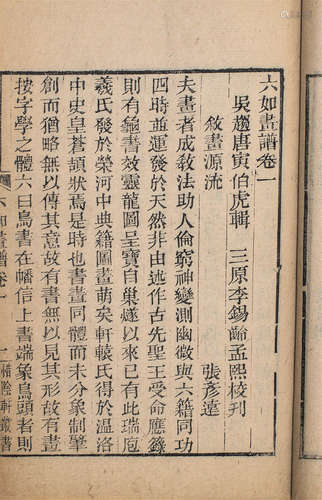 六如畫譜卷一
吳趨唐寅伯虎輯 三原李錫齡孟熙校刋
敘畫源流 張彥遠
夫畫者成敎法助人倫窮神變測幽微與六籍同功
四時並運發於天然非由述作古先聖王受命應籙
則有龜書效靈龍圖呈寶自巢燧以來有此瑞庖
羲氏發於榮河中典籍圖畫萌矣軒轅氏得於溫洛
中史皇蒼頡狀焉是時也書畫同體而未分象制肇
創而猶略無以傳其意故有書無以見其形故有畫
按字學之體六曰鳥書在幡信上書端象鳥頭者則
六如畫譜卷一 一 惜陰軒叢書